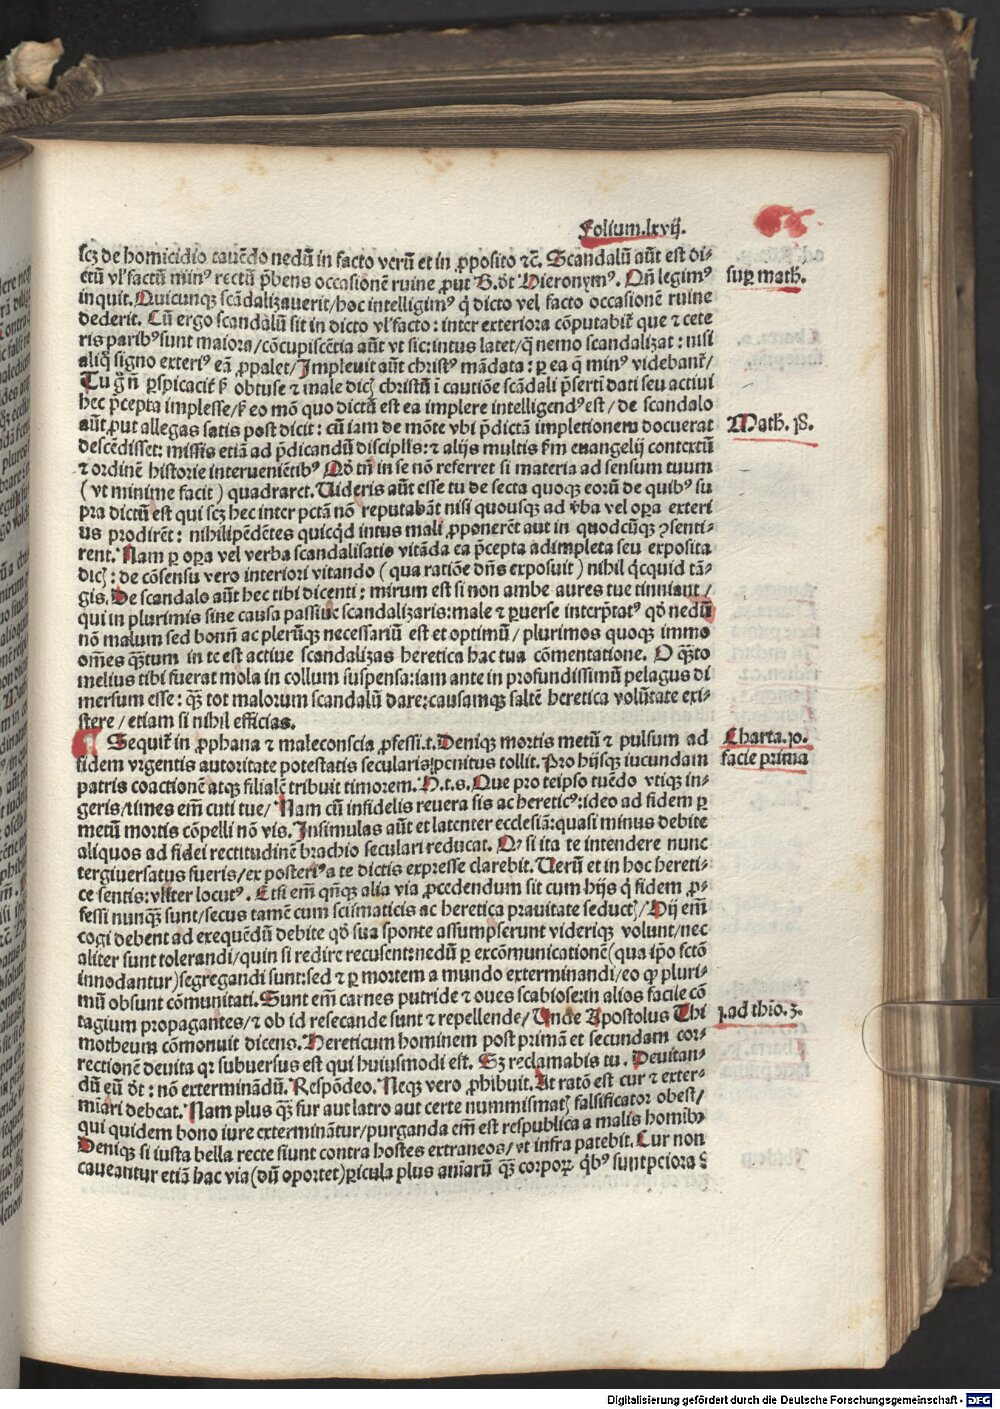 Folium.lxvij.
scꝫ de homicidio cauẽdo nedũ in facto verũ et in ꝓposito ⁊c̃. Scandalũ aũt est di⸗
ctũ vl' factũ minꝰ rectũ p̃bens occasionẽ ruine ꝓut B. d̃t Hieronymꝰ. Qñ legimꝰ
inquit. Quicunqꝫ scãdalizauerit/hoc intelligimꝰ q̇ dicto vel facto occasionẽ ruine
dederit. Cũ ergo scandalũ sit in dicto vl' facto: inter exteriora cõputabit᷑ que ⁊ cete
ris paribꝰ sunt maiora/cõcupiscẽtia aũt vt sic: intus latet/q̃ nemo scandalizat: nisi
aliq̊ signo exteriꝰ eã ꝓpalet/Impleuit aũt christꝰ mãdata: ꝑ ea q̃ minꝰ videbant᷑/
Tu g̃ ñ ꝑspicacit᷑ ẜ obtuse ⁊ male dicꝭ christũ ĩ cautiõe scãdali p̃serti dati seu actiui
hec p̃cepta implesse/ẜ eo mõ quo dictũ est ea implere intelligendꝰ est/de scandalo
aũt ꝓut allegas satis post dicit: cũ iam de mõte vbi p̃dictã impletionem docuerat
descẽdisset: missis etiã ad p̃dicandũ disciplis: ⁊ alijs multis ẜm euangelij contextũ
⁊ ordinẽ historie interueniẽtibꝰ Qd̃ tñ in se nõ referret si materia ad sensum tuum
(vt minime facit) quadraret. Uideris aũt esse tu de secta quoqꝫ eorũ de quibꝰ su
pra dictũ est qui scꝫ hec inter pctã nõ reputabãt nisi quousqꝫ ad v̓ba vel oꝑa exteri
us prodirẽt: nihilipẽdẽtes quicq̇d intus mali ꝓponerẽt aut in quodcũqꝫ ꝯsenti⸗
rent. Nam ꝑ oꝑa vel verba scandalisatiõ vitãda ea p̃cepta adimpleta seu exposita
dicꝭ: de cõsensu vero interiori vitando (qua ratiõe dñs exposuit) nihil q̇cquid tã⸗
gis. De scandalo aũt hec tibi dicenti: mirum est si non ambe aures tue tinniant/
qui in plurimis sine causa passiue scandalizaris: male ⁊ ꝑuerse intcrp̃tatꝰ qd̃ nedũ
nõ malum sed bonũ ac plerũqꝫ necessariũ est et optimũ/plurimos quoqꝫ immo
om̃es qꝫ̃tum in te est actiue scandalizas heretica hac tua cõmentatione. O qꝫ̃to
melius tibi fuerat mola in collum suspensa: iam ante in profundissimũ pelagus di
mersum esse: qꝫ̃ tot malorum scandalũ dare: causamqꝫ saltẽ heretica volũtate exi⸗
stere/etiam si nihil efficias.
¶ Sequit᷑ in ꝓphana ⁊ maleconscia ꝓfessi.t. Deniqꝫ mortis metũ ⁊ pulsum ad
fidem vrgentis autoritate potestatis secularis penitus tollit. Pro hijsqꝫ iucundam
patris coactionẽ atqꝫ filialẽ tribuit timorem. H.t.s. Que pro teipso tuẽdo vtiqꝫ in⸗
geris/times em̃ cuti tue/Nam cũ infidelis reuera sis ac hereticꝰ: ideo ad fidem ꝑ
metũ mortis cõpelli nõ vis. Insimulas aũt et latenter ecclesiã: quasi minus debite
aliquos ad fidei rectitudinẽ brachio seculari reducat. Qꝫ si ita te intendere nunc
tergiuersatus fueris/ex posteriꝰ a te dictis expresse clarebit. Uerũ et in hoc hereti⸗
ce sentis: vl'iter locutꝰ. Etsi em̃ qñqꝫ alia via ꝓcedendum sit cum hijs q̇ fidem ꝓ⸗
fessi nunqꝫ̃ sunt/secus tamẽ cum scismaticis ac heretica prauitate seductꝭ/Hij em̃
cogi debent ad exequẽdũ debite qd̃ sua sponte assumpserunt viderique volunt/nec
aliter sunt tolerandi/quin si redire recusent: nedũ ꝑ excõmunicationẽ (qua ip̃o fctõ
innodantur) segregandi sunt: sed ⁊ ꝑ mortem a mundo exterminandi/eo qꝙ pluri⸗
mũ obsunt cõmunitati. Sunt em̃ carnes putride ⁊ oues scabiose: in alios facile cõ
tagium propagantes/⁊ ob id resecande sunt ⁊ repellende/Unde Apostolus Thi
motheum cõmonuit dicens. Hereticum hominem post primã et secundam cor⸗
rectionẽ deuita qꝛ subuersus est qui huiusmodi est. Sꝫ reclamabis tu. Deuitan⸗
dũ eũ d̃t: nõ exterminãdũ. Respõdeo. Neqꝫ vero ꝓhibuit. At ratõ est cur ⁊ exter⸗
miari debeat. Nam plus qꝫ̃ fur aut latro aut certe nummismatꝭ falsificator obest/
qui quidem bono iure exterminãtur/purganda em̃ est respublica a malis homibꝰ
Denique si iusta bella recte fiunt contra hostes extraneos/vt infra patebit. Cur non
caueantur etiã hac via (dũ oportet) ꝑicula plus aniarũ qꝫ̃ corpoꝝ q̇bꝰ sunt pciora?
suꝑ math.
Math. 18.
Charta.10.
facie prima
1.ad thio.3.
Digitalisierung gefördert durch die Deutsche Forschungsgemeinschaft - DFG